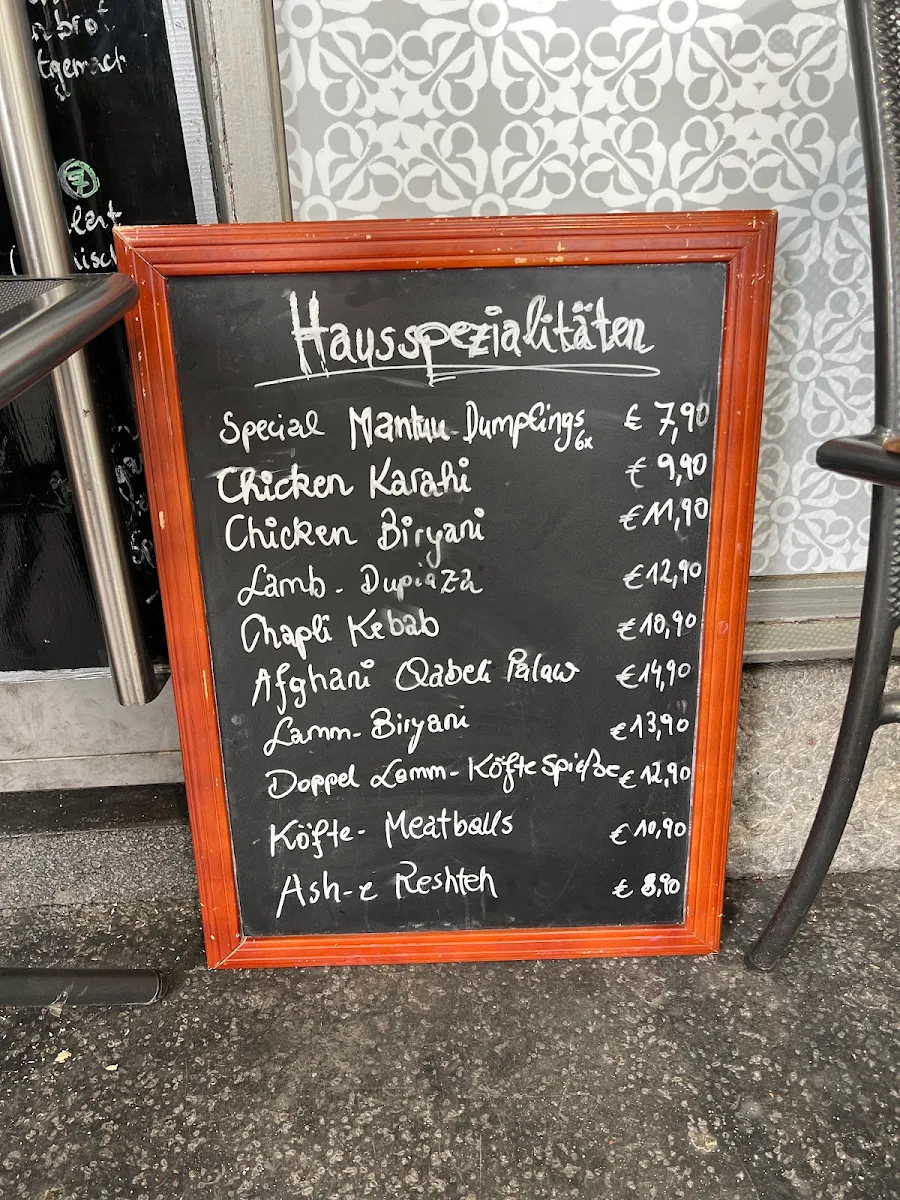 Hausspezialitäten
Special Mantuu-Dumplings 6x € 7,90
Chicken Karahi € 9,90
Chicken Biryani € 11,90
Lamb-Dupiaza € 12,90
Chapli Kebab € 10,90
Afghani Qabeli Palaw € 14,90
Lamm-Biryani € 13,90
Doppel Lamm-Köfte Spieße € 12,90
Köfte-Meatballs € 10,90
Ash-e Reshteh € 8,90